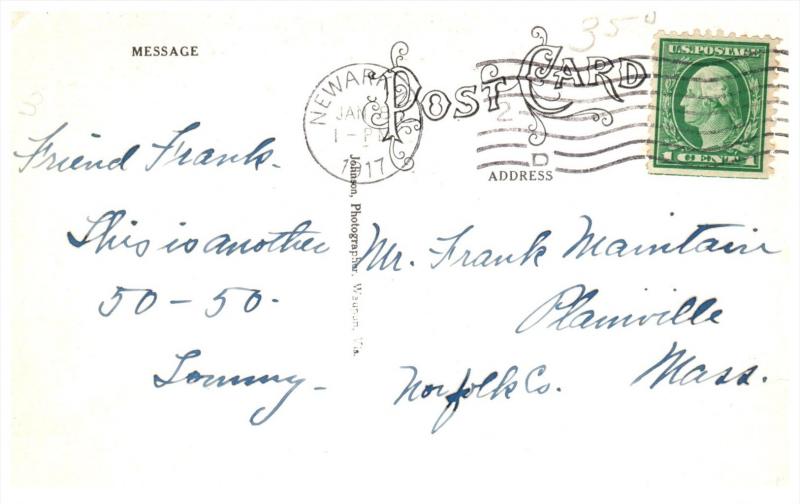 350
MESSAGE
POST CARD
U.S. POSTAGE
1 CENT 1
NEWARK
JAN 8
1-P
1917
2
D
ADDRESS
Friend Frank.
This is another
50-50.
Tommy-
Johnson, Photographer, Waupun, Wis.
Mr. Frank Maintain
Plainville
Norfolk Co.
Mass.